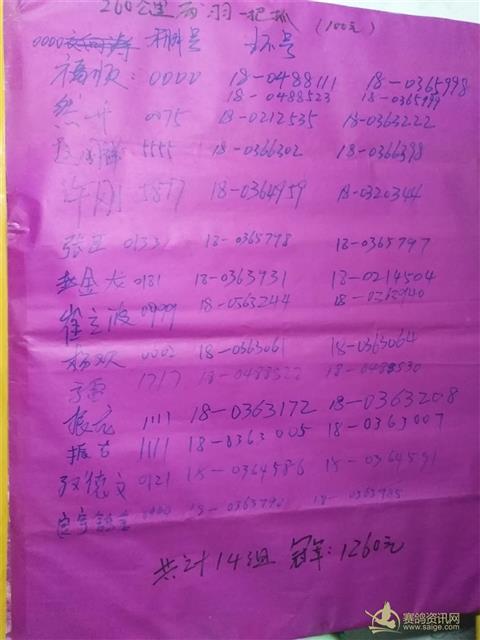 260公里两羽一把抓 (100元)
0000 棚号 环号
福顺: 0000 18-0488111 18-0365998
18-0488523 18-0365999
0075 18-0212535 18-0363222
5555 18-0366302 18-0366398
许刚 5877 18-0364959 18-0320344
张正 01331 18-0365798 18-0365797
赵金龙 0181 18-0363931 18-0214504
崔立波 0999 18-0563244
杨欢 0002 18-0363061 18-0363064
1717 18-0488522 18-0488530
振元 1111 18-0363172 18-0363208
振吉 1111 18-0363005 18-0363007
双德文 0121 18-0364586 18-0364591
18-0363985
共计14组 冠军:1260元
赛鸽资讯网
www.saige.com